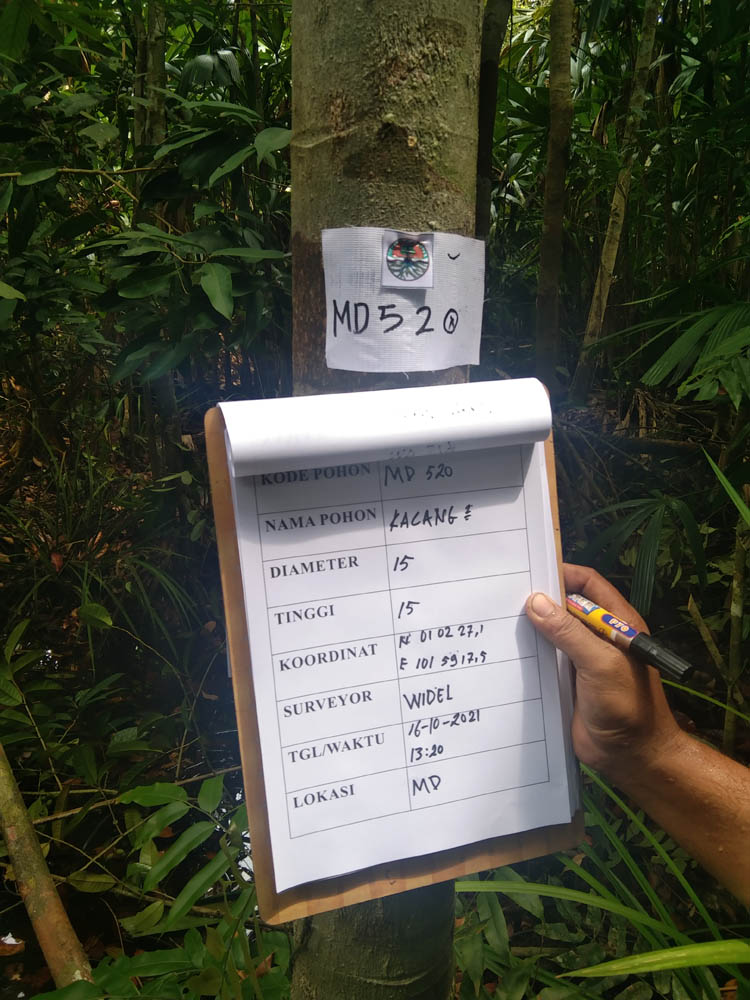 MD 520
KODE POHON MD 520
NAMA POHON KACANG²
DIAMETER 15
TINGGI 15
KOORDINAT N 01 02 27,1
E 101 59 17,5
SURVEYOR WIDEL
TGL/WAKTU 16-10-2021
13:20
LOKASI MD